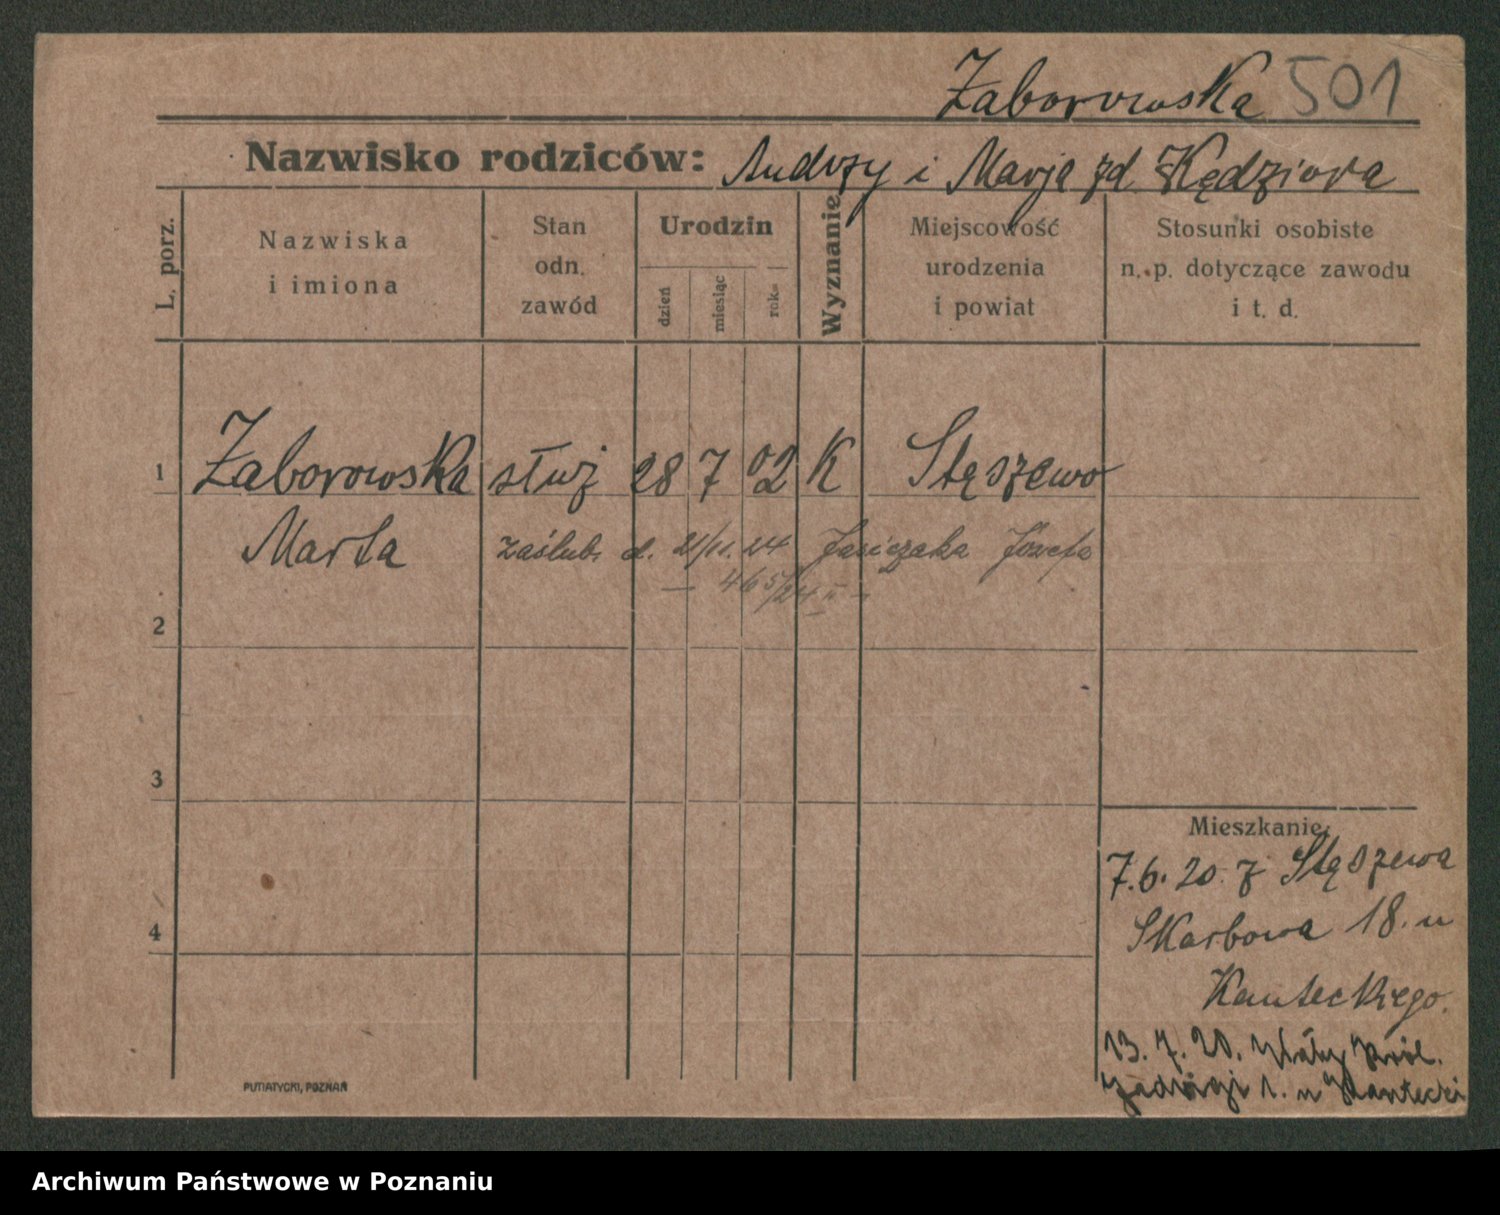 Zaborowska 501
Nazwisko rodziców: Andrzy i Marja zd Kędziora
L. porz.
Nazwiska i imiona
Stan odn. zawód
Urodzin
dzień
miesiąc
rok
Wyznanie
Miejscowość urodzenia i powiat
Stosunki osobiste n. p. dotyczące zawodu i t. d.
1 Zaborowska służ 28 7 02 K Stęszewo
Marta zaślub. d. 21/11. 24 Jasiczaka Józefa
— 465/24 II —
2
3
4
Mieszkanie:
7.6.20. z Stęszewa
Skarbowa 18. u
Kanteckiego.
13. 7. 20. Wały Król.
Jadwigi 1. u Kantecki
PUTIATYCKI, POZNAŃ
Archiwum Państwowe w Poznaniu